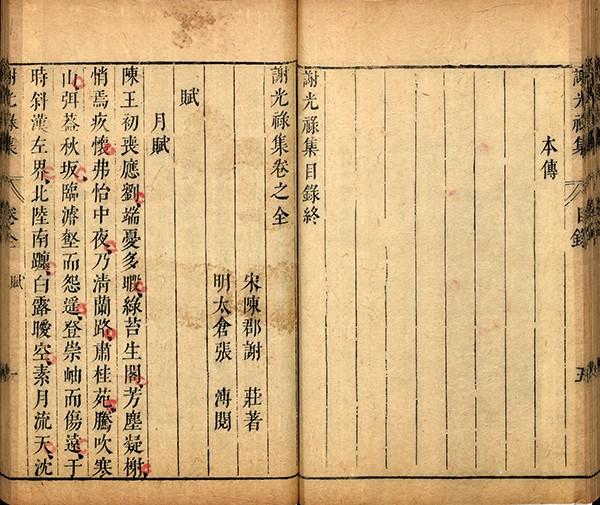 謝光祿集 目錄 五
本傳
謝光祿集目錄終
謝光祿集卷之全
宋陳郡謝 莊著
明太倉張 溥閱
賦
月賦
陳王初喪應劉、端憂多暇、綠苔生閣、芳塵凝榭、
悄焉疚懷、弗怡中夜、乃清蘭路、肅桂苑、騰吹寒
山、弭蓋秋坂、臨濬壑而怨遙、登崇岫而傷遠、于
時斜漢左界、北陸南躔、白露曖空、素月流天、沈
謝光祿集 卷全 賦 一